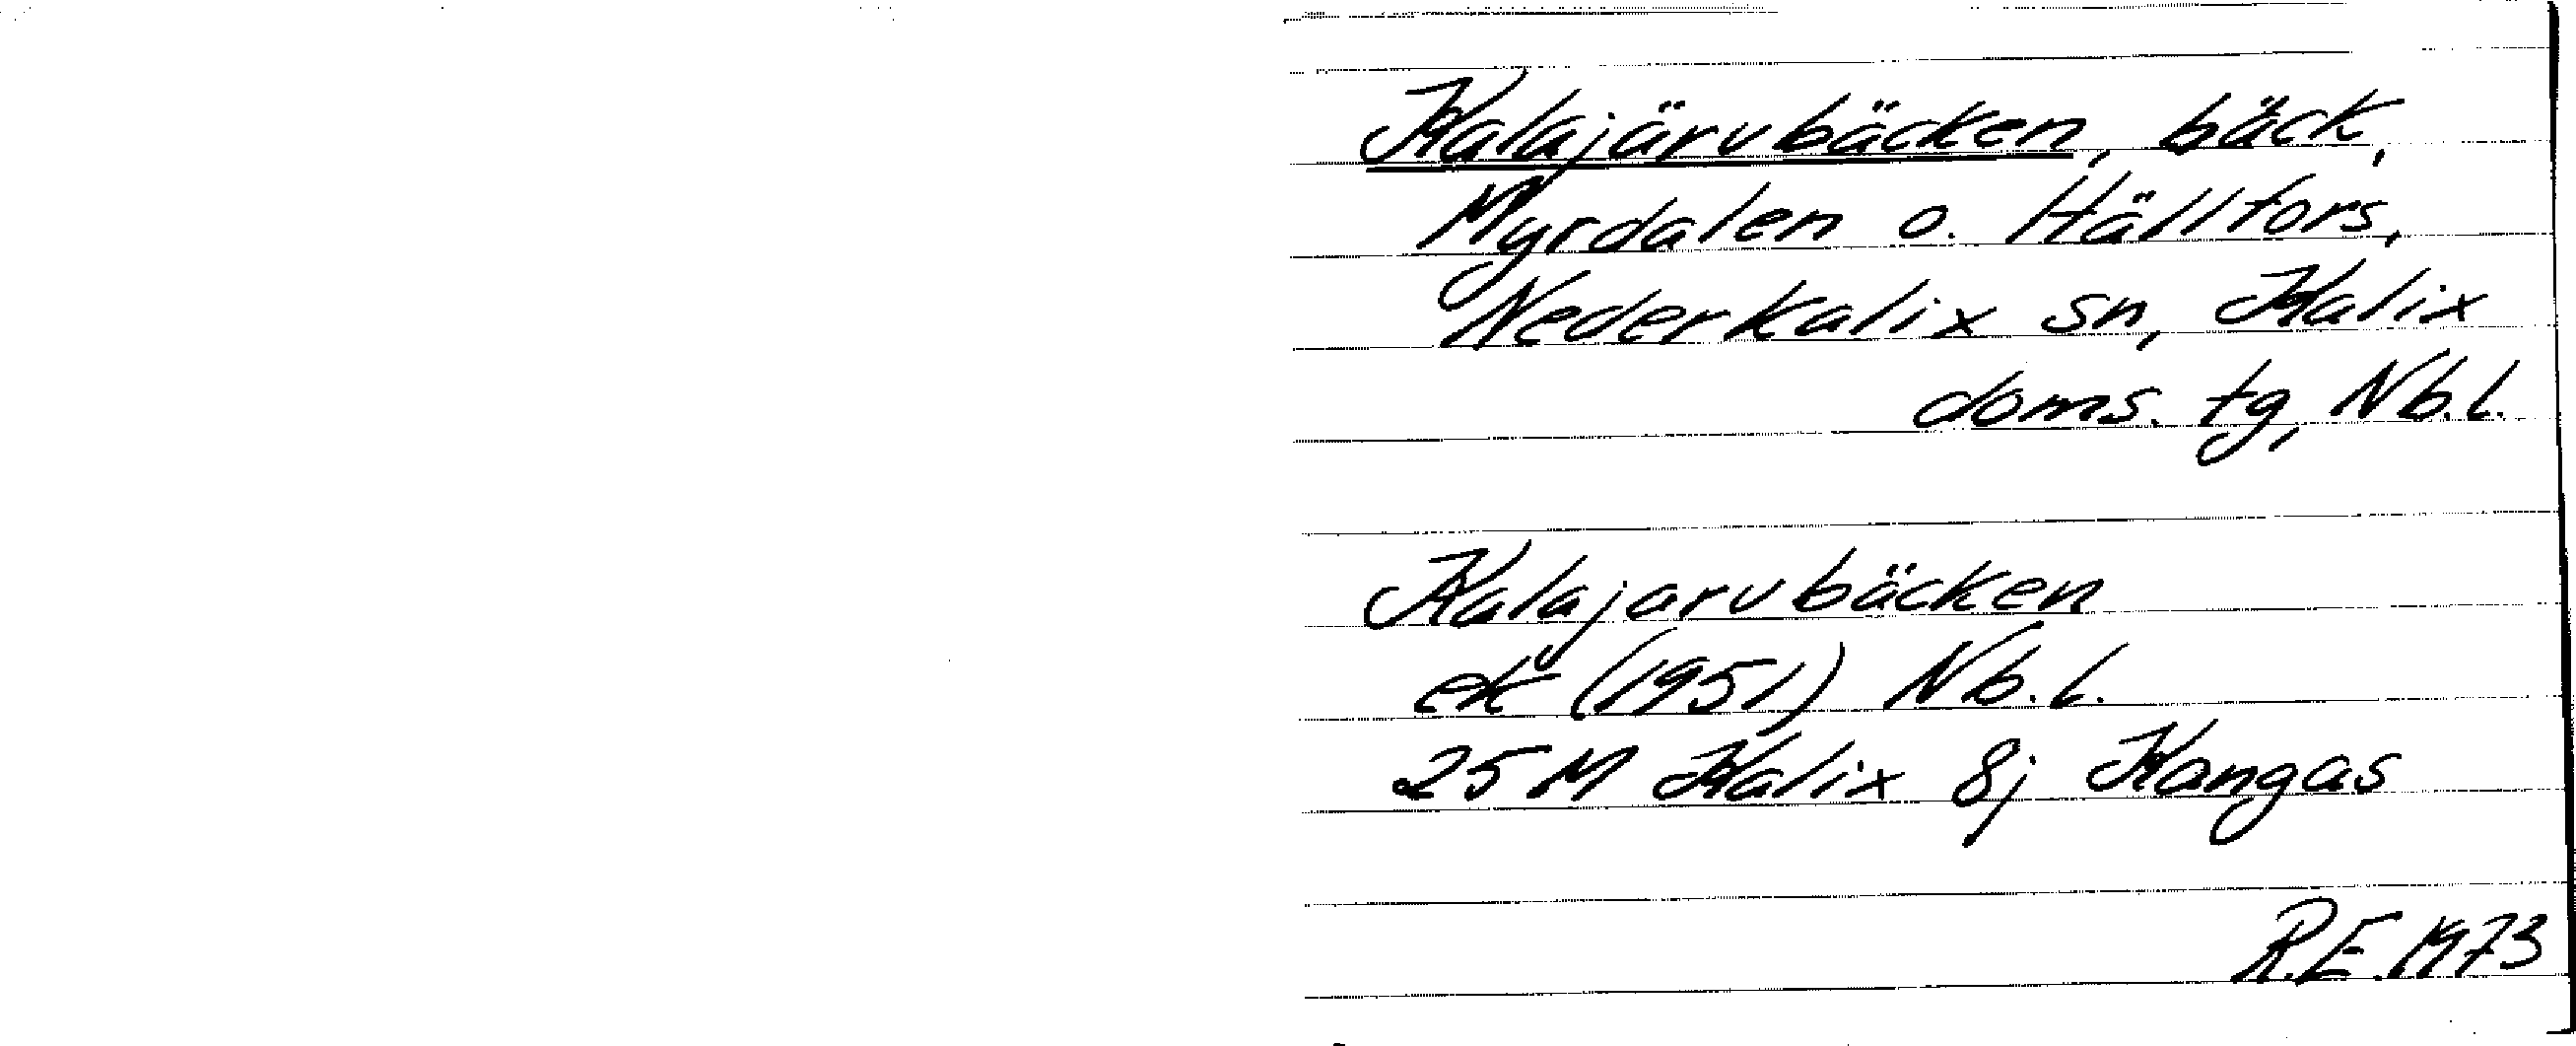 Kalajärvbäcken, bäck,
Myrdalen o. Hällfors,
Nederkalix sn, Kalix
doms. tg, Nb.l.
Kalajarvbäcken
ek (1951) Nb.l.
25 M Kalix 8j Kangas
R.E. 1973